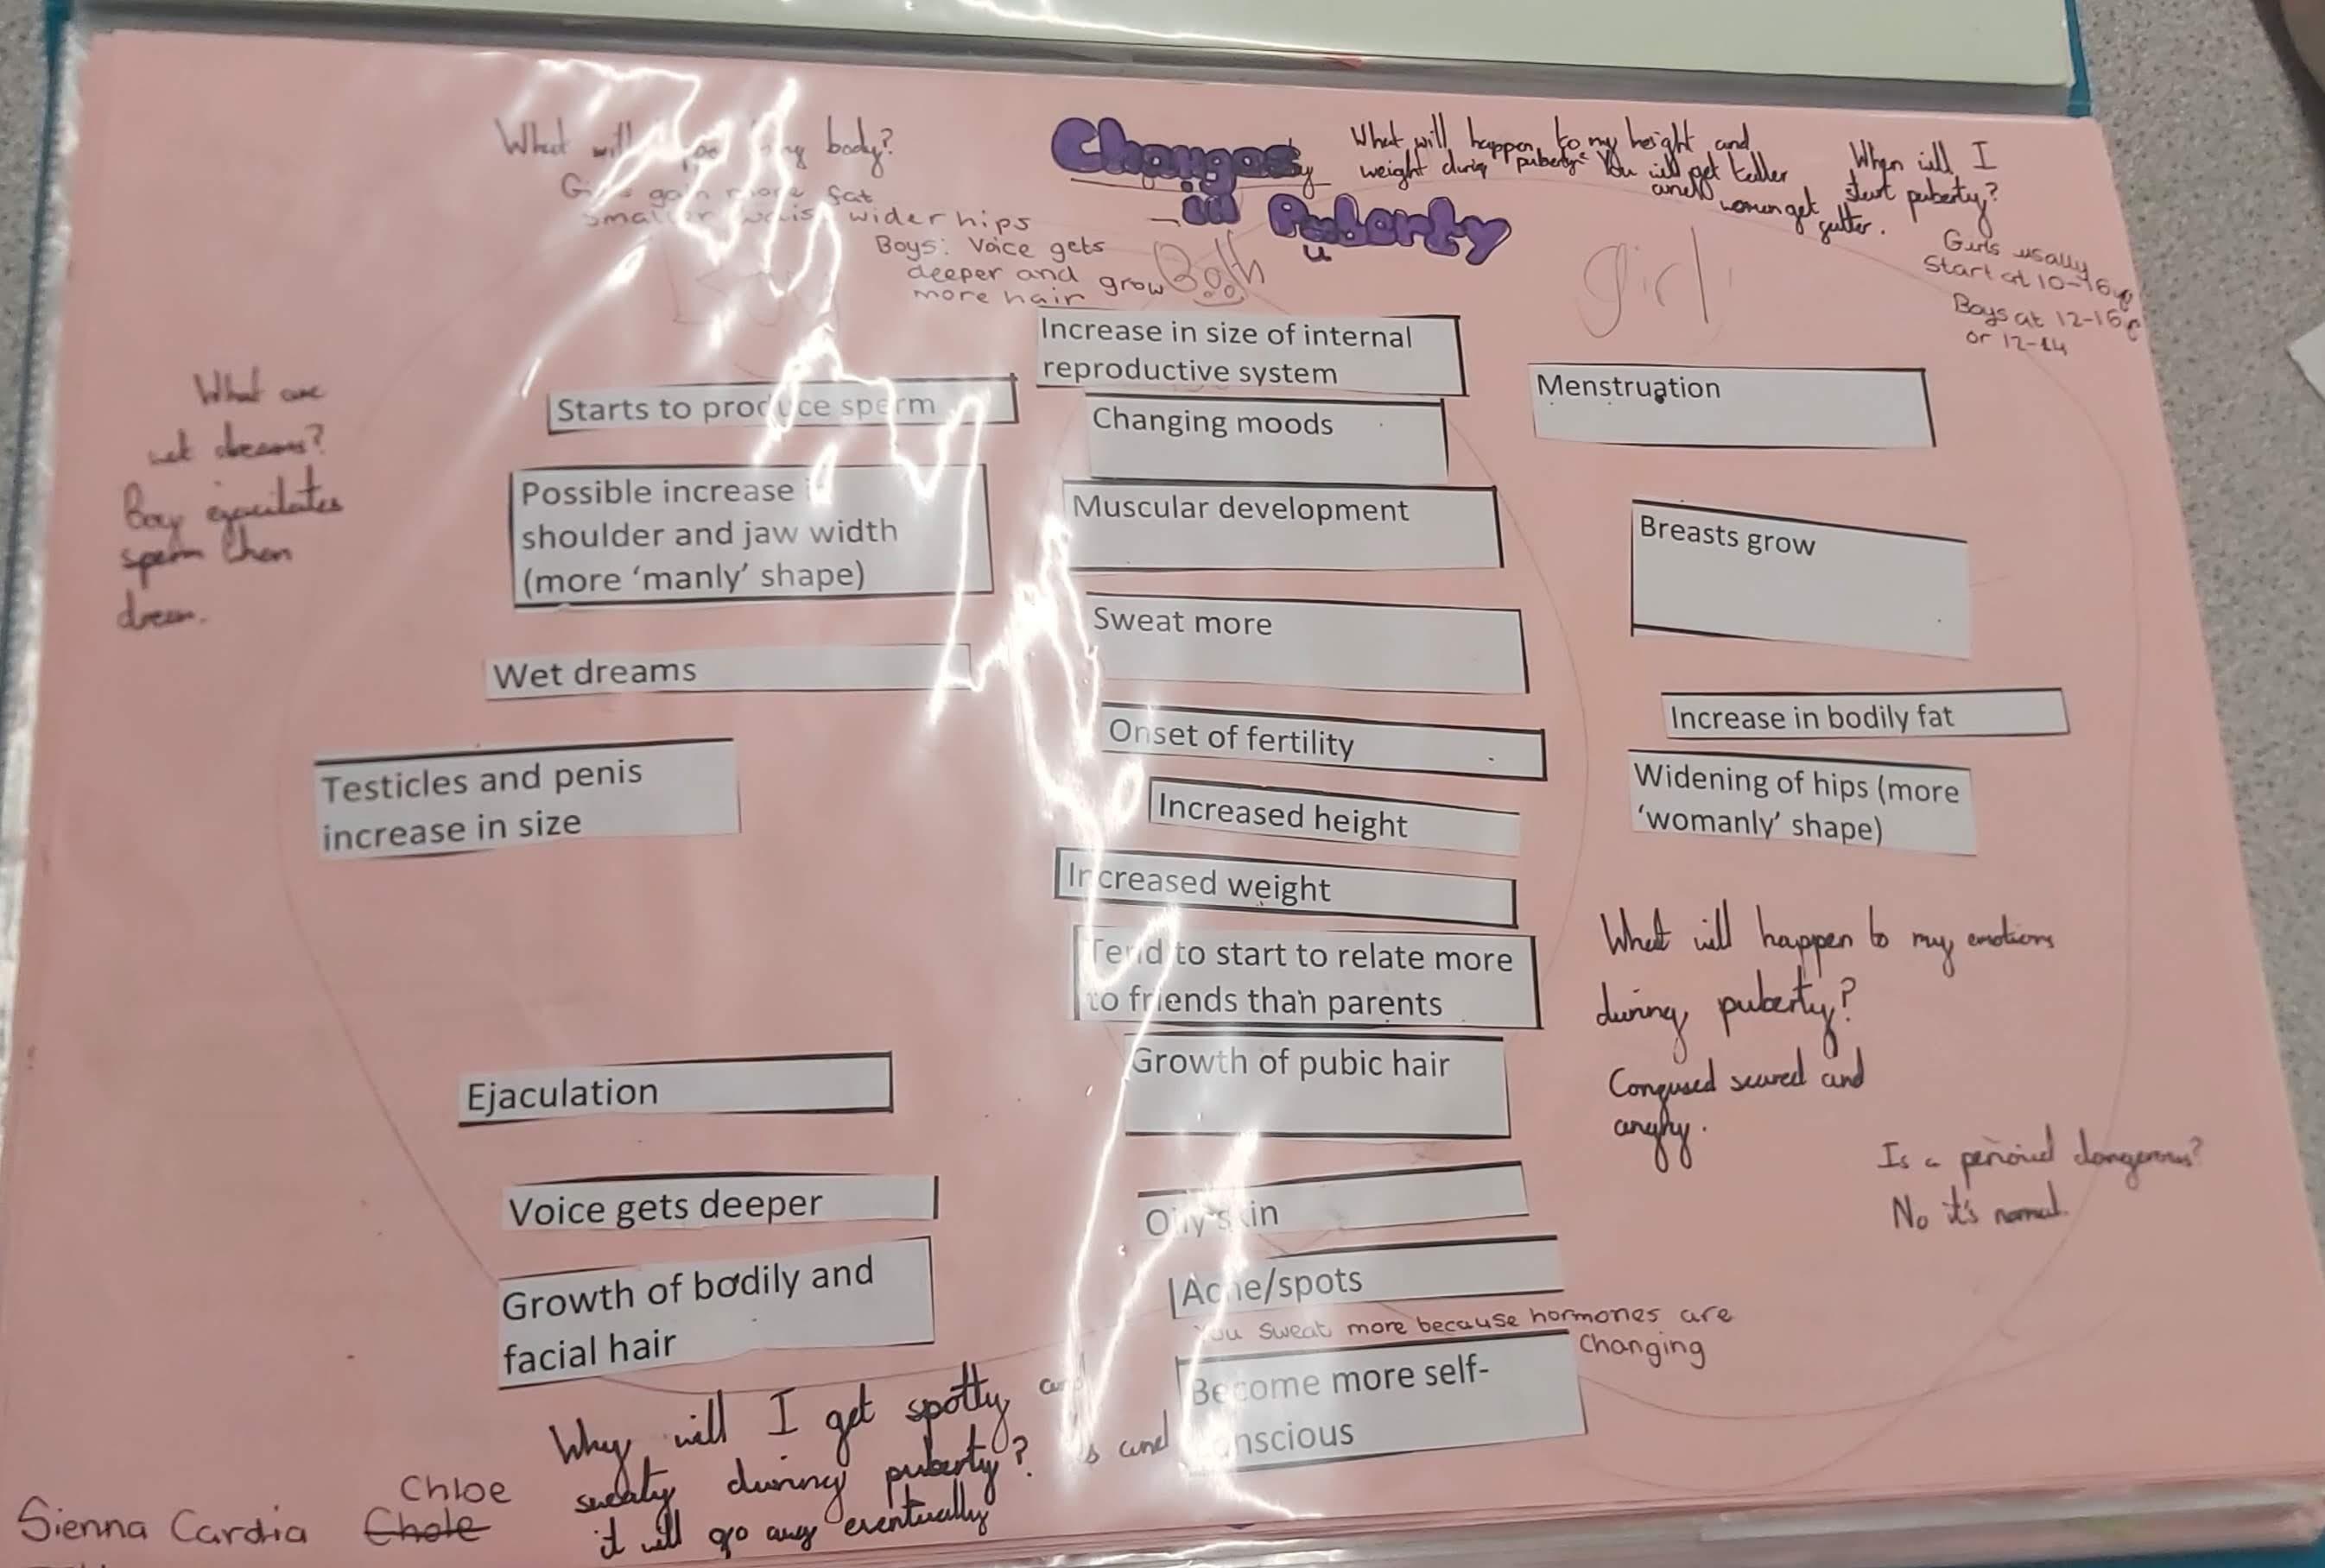 What will my body?
Girls gain more fat
smaller waist wider hips
Boys: Voice gets
deeper and grow
more hair
Changes
in Puberty
u
What will happen to my height and
weight during puberty? You will get taller
and women get
What will I
start puberty?
Girls usally
Start at 10-16
Boys at 12-16
or 12-14
Boy
Both
girl
What are
wet dreams?
Boy ejaculates
sperm then
dream.
Starts to produce sperm
Possible increase
shoulder and jaw width
(more ‘manly’ shape)
Wet dreams
Testicles and penis
increase in size
Ejaculation
Voice gets deeper
Growth of bodily and
facial hair
Increase in size of internal
reproductive system
Changing moods
Muscular development
Sweat more
Onset of fertility
Increased height
Increased weight
Tend to start to relate more
to friends than parents
Growth of pubic hair
Oily skin
Acne/spots
You sweat more because hormones are
changing
Become more self-
conscious
Menstruation
Breasts grow
Increase in bodily fat
Widening of hips (more
‘womanly’ shape)
What will happen to my emotions
during puberty?
Confused scared and
angry.
Is a perioid dangerous?
No it's normal.
Why will I get spotty and
sweaty during puberty? and
it will go away eventually
Sienna Cardia Chole
Chloe